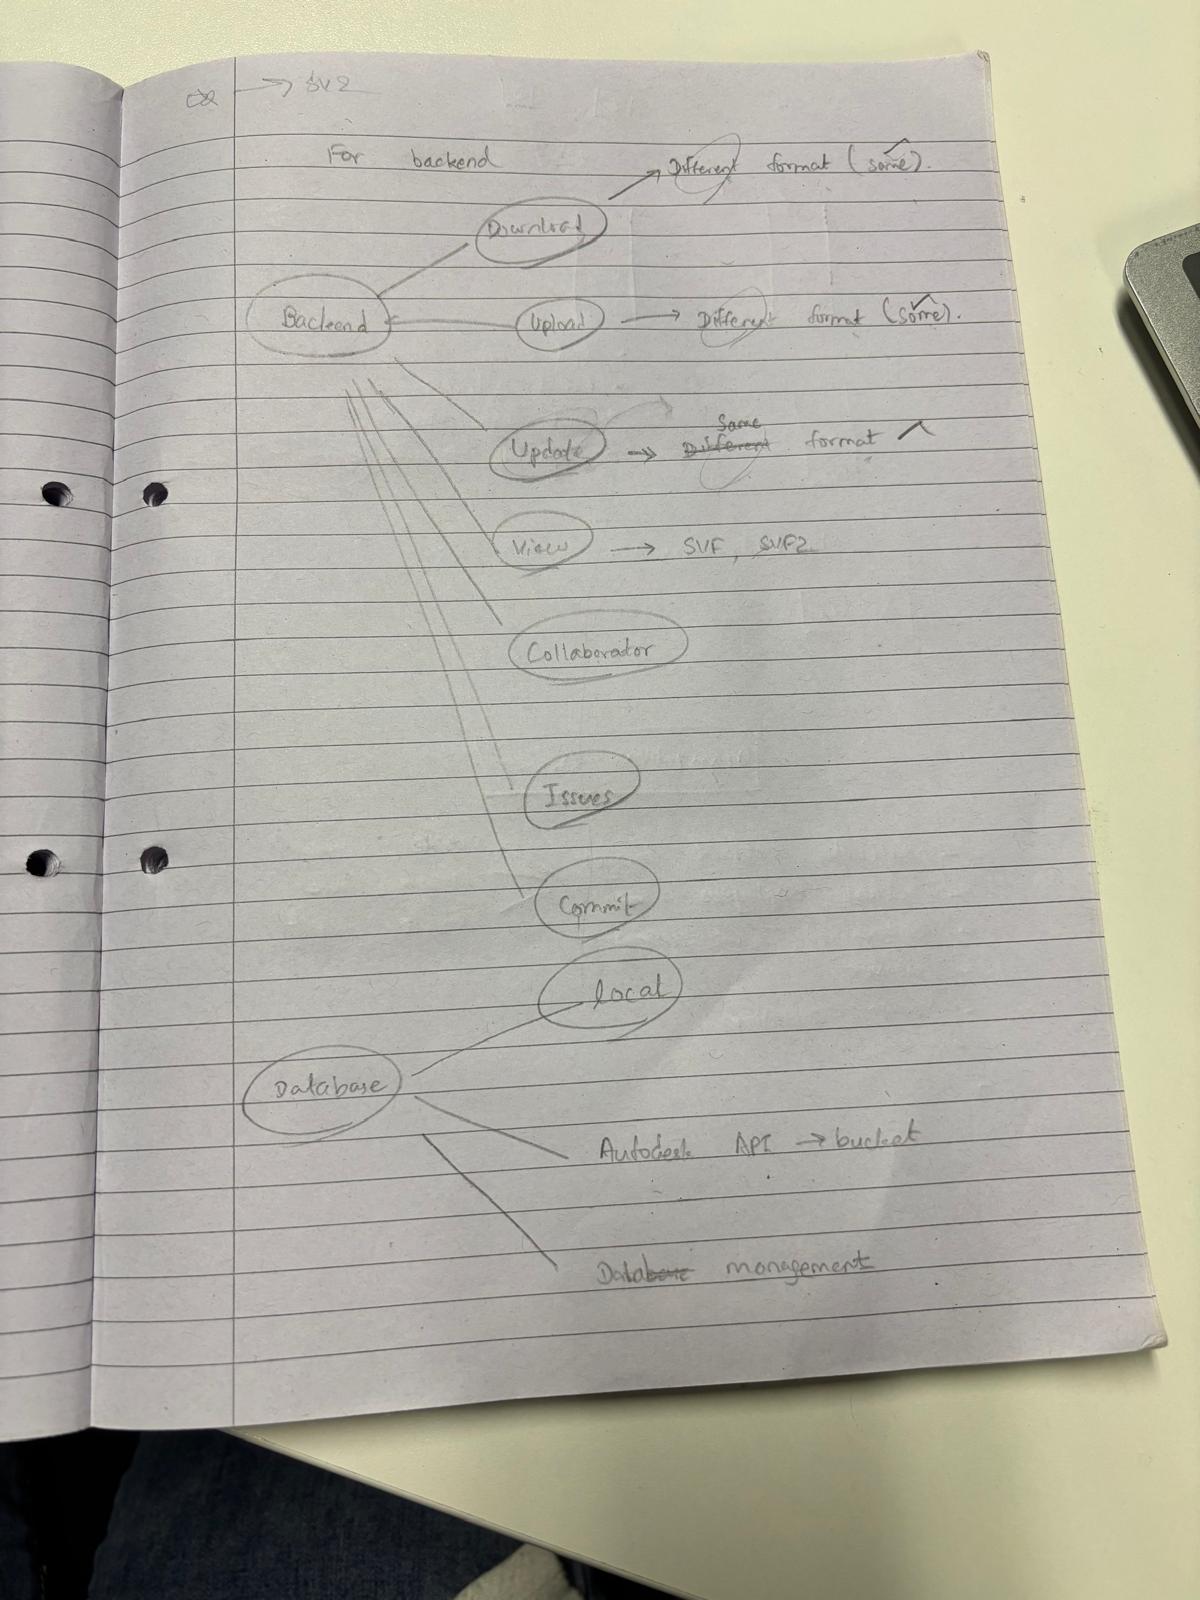 → SV2
For backend
→ Different format (same).
Download
Backend
Upload → Different format (same).
Same
Update → Different format
View → SVF, SVF2
Collaborator
Issues
Commit
local
Database
Autodesk API → bucket
Database management